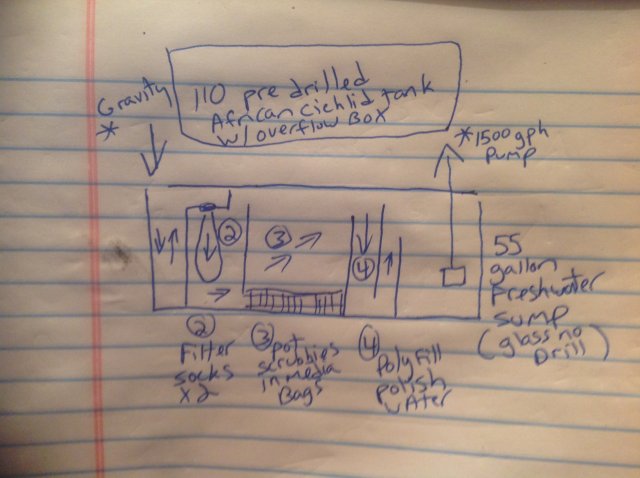 Gravity
*
110 pre drilled
African Cichlid tank
w/overflow Box
*1500gph
Pump
2
3
4
55
gallon
Freshwater
sump
(glass no
Drill)
2
Filter
socks
x2
3
pot
scrubbies
in media
Bags
4
Polyfill
polish
water